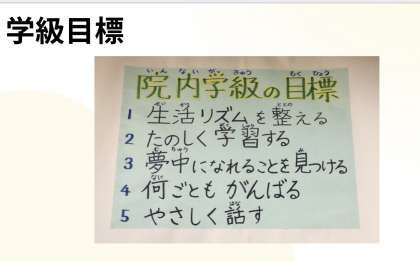 学級目標
院内学級の目標
1 生活リズムを整える
2 たのしく学習する
3 夢中になれることを見つける
4 何ごとも がんばる
5 やさしく話す